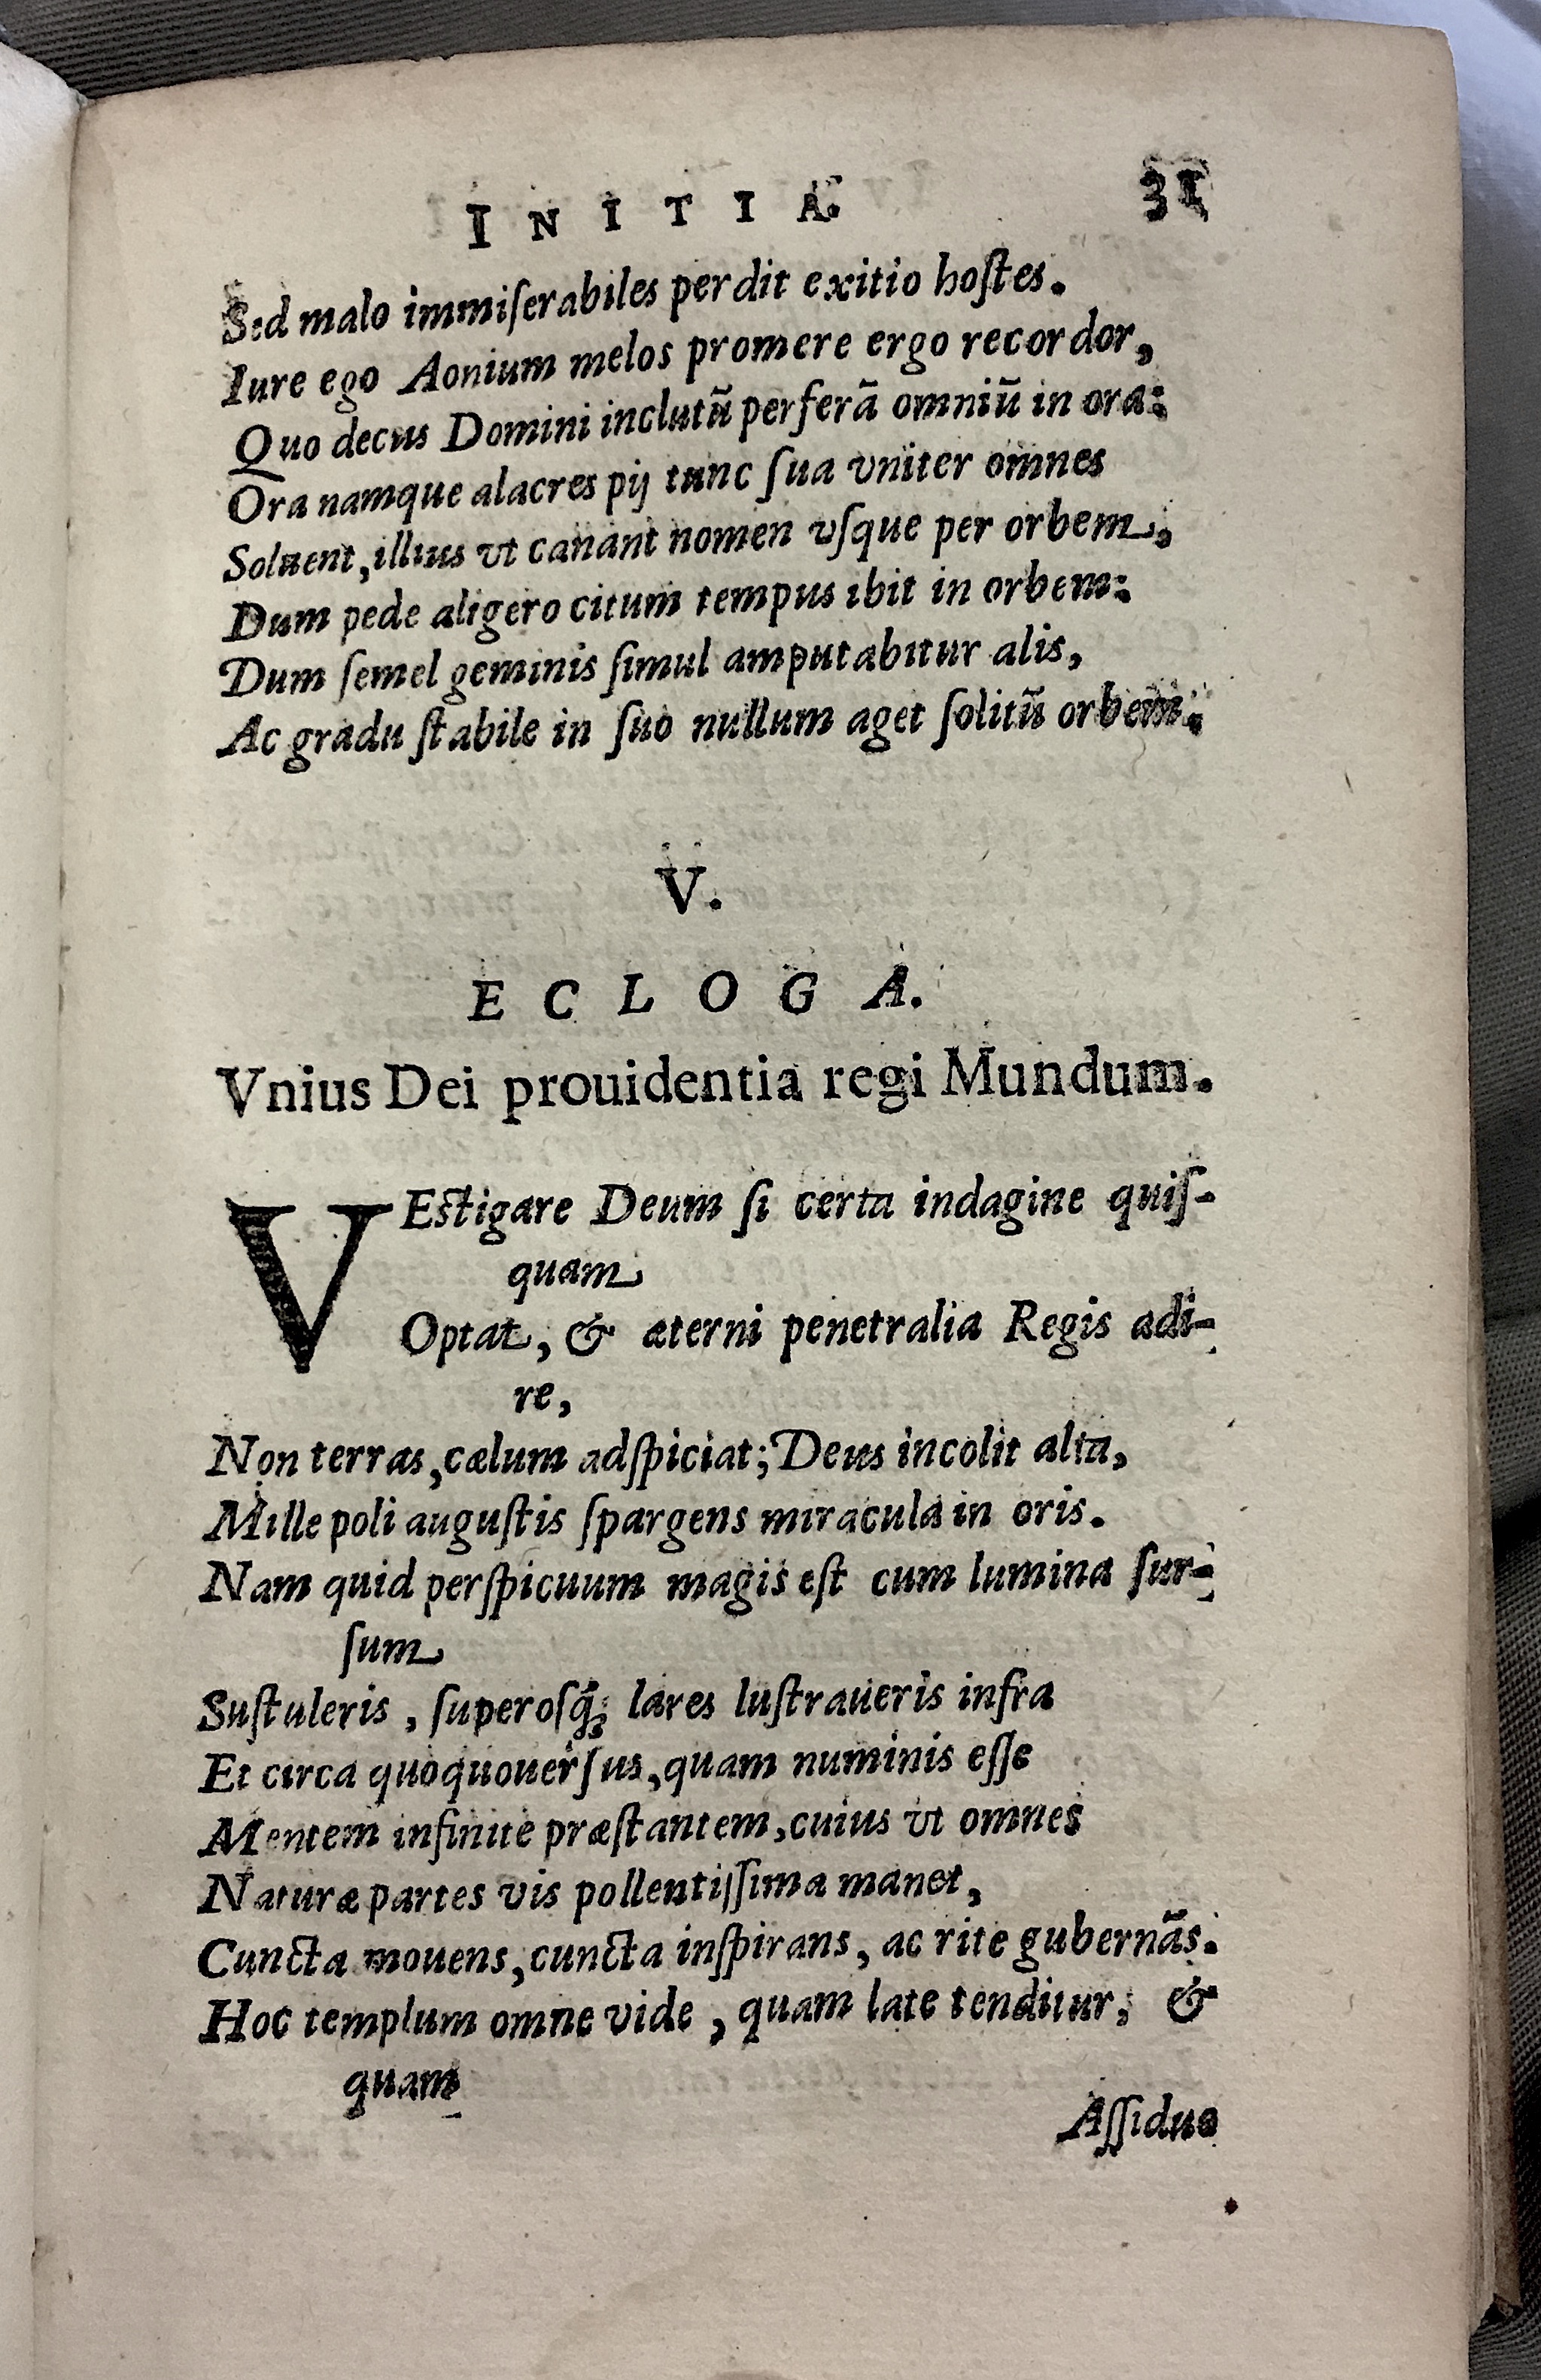 INITIA. 31
Sed malo immiſerabiles perdit exitio hoſtes.
Iure ego Aonium melos promere ergo recordor,
Quo decus Domini inclutũ perferã omniũ in ora:
Ora namque alacres pij tunc ſua vniter omnes
Soluent, illius vt canant nomen vſque per orbem,
Dum pede aligero citum tempus ibit in orbem:
Dum ſemel geminis ſimul amputabitur alis,
Ac gradu ſtabile in ſuo nullum aget ſolitũ orbem.
V.
ECLOGA.
Vnius Dei prouidentia regi Mundum.
VEſtigare Deum ſi certa indagine quiſ-
quam
Optat, & æterni penetralia Regis adi-
re,
Non terras, cælum adſpiciat; Deus incolit alta,
Mille poli auguſtis ſpargens miracula in oris.
Nam quid perſpicuum magis eſt cum lumina ſur-
ſum
Suſtuleris, ſuperoſq́; lares luſtraueris infra
Et circa quoquouerſus, quam numinis eſſe
Mentem infinite præſtantem, cuius vt omnes
Naturæ partes vis pollentiſſima manet,
Cuncta mouens, cuncta inſpirans, ac rite gubernãs.
Hoc templum omne vide, quam late tenditur, &
quam
Aſſiduo